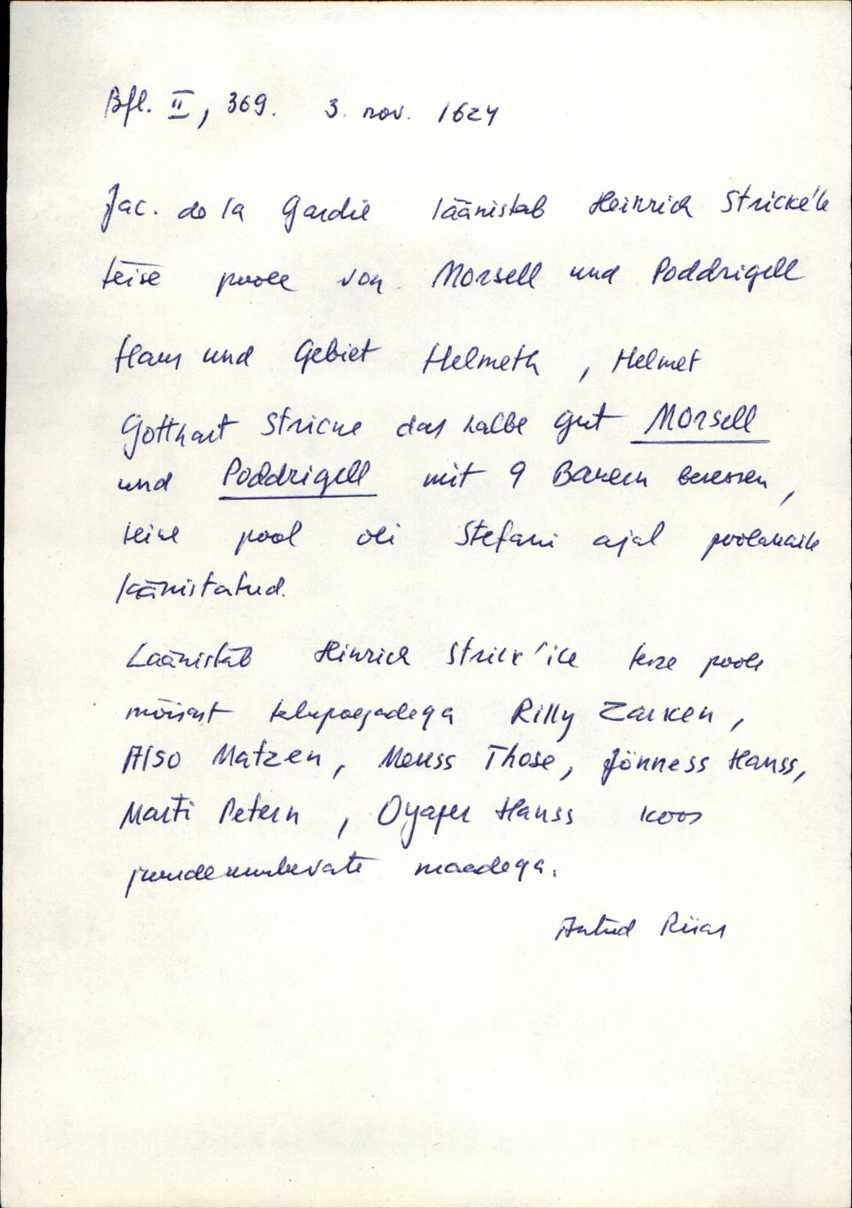 Bfl. II, 369. 3. nov. 1624
Jac. de la Gardie läänistab Heinrich Stricke'le
teise poole von Morsell und Poddrigell
Haus und Gebiet Helmeth, Helmet
Gotthart Stricke das halbe gut Morsell
und Poddrigell mit 9 Bauern besessen,
teine pool oli Stefani ajal poolakaile
läänistatud.
Läänistab Hinrich Strick'ile teise poole
mõisast talupoegadega Rilly Zarken,
Also Matzen, Meuss Those, Jönness Hanss,
Marti Petern, Oyaper Hanss koos
juurdekuuluvate maadega.
Antud Riias